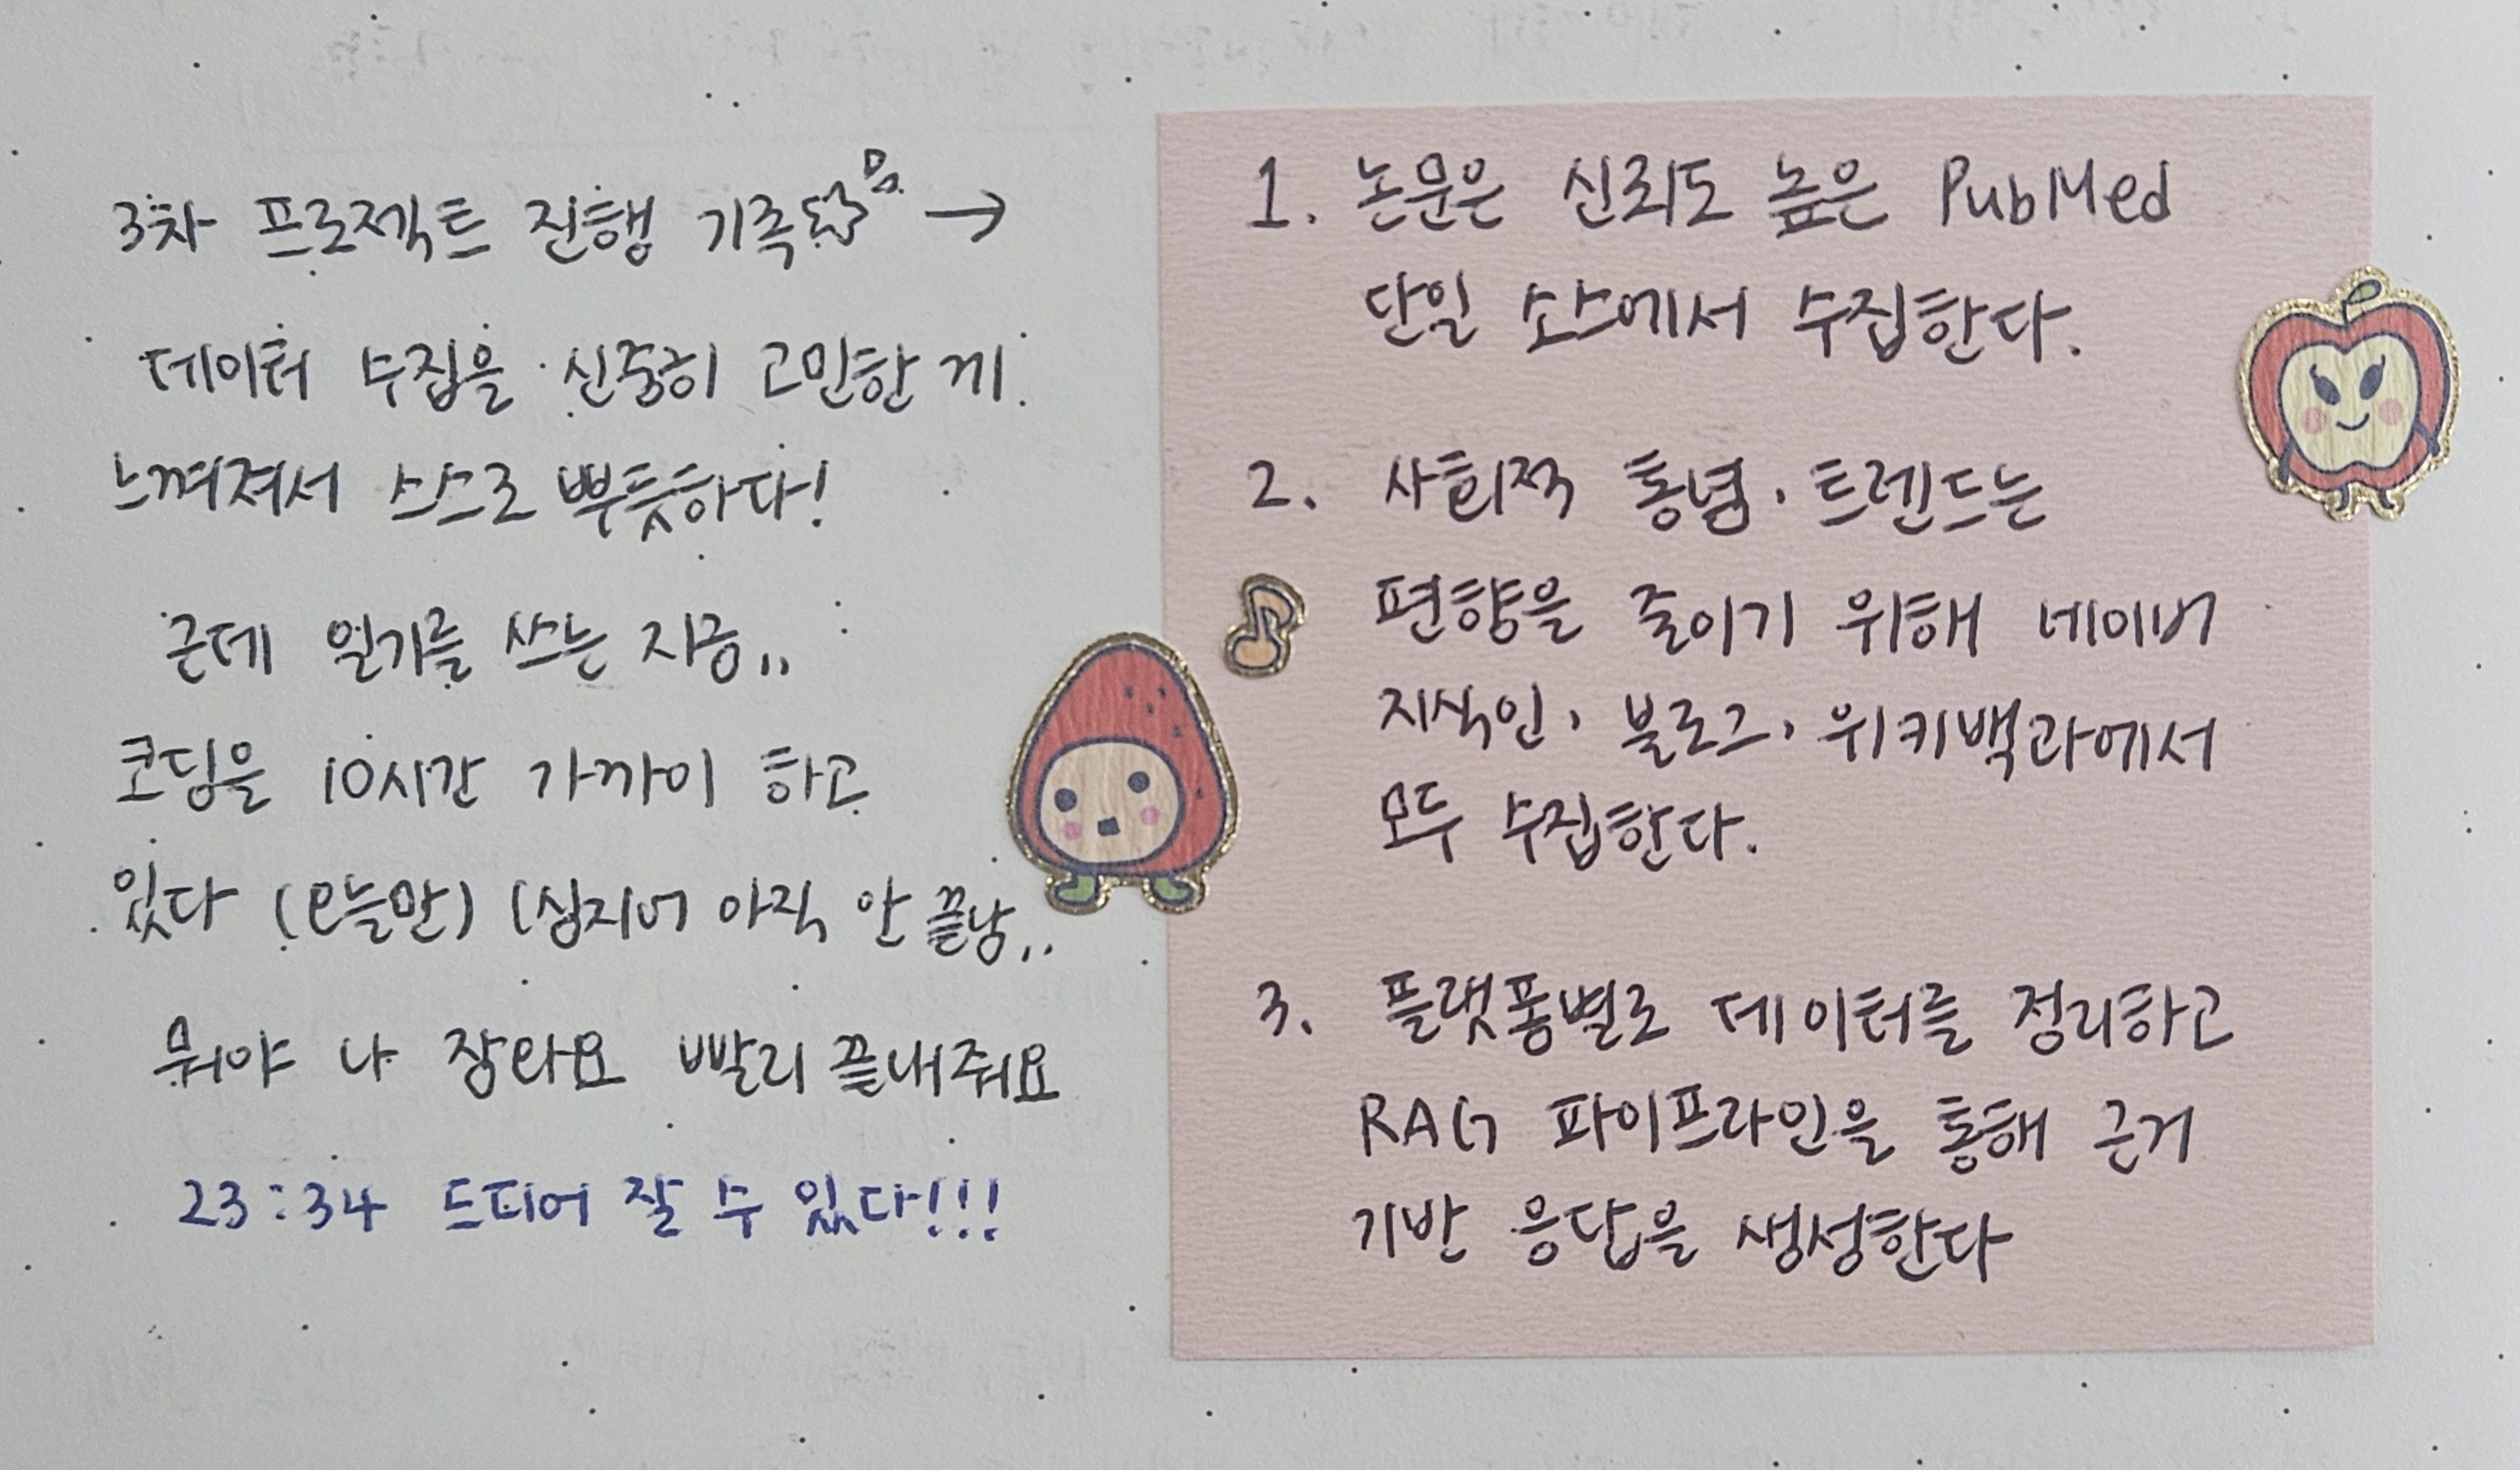 3차 프로젝트 진행 기록 →
데이터 수집을 신중히 고민한 게
느껴져서 스스로 뿌듯하다!
근데 일기를 쓰는 지금..
코딩을 10시간 가까이 하고
있다 (오늘만) (심지어 아직 안 끝남..
뭐야 나 잘라요 빨리 끝내줘요
23:34 드디어 잘 수 있다!!!
1. 논문은 신뢰도 높은 PubMed
단일 소스에서 수집한다.
2. 사회적 통념·트렌드는
편향을 줄이기 위해 네이버
지식인, 블로그, 위키백과에서
모두 수집한다.
3. 플랫폼별로 데이터를 정리하고
RAG 파이프라인을 통해 근거
기반 응답을 생성한다